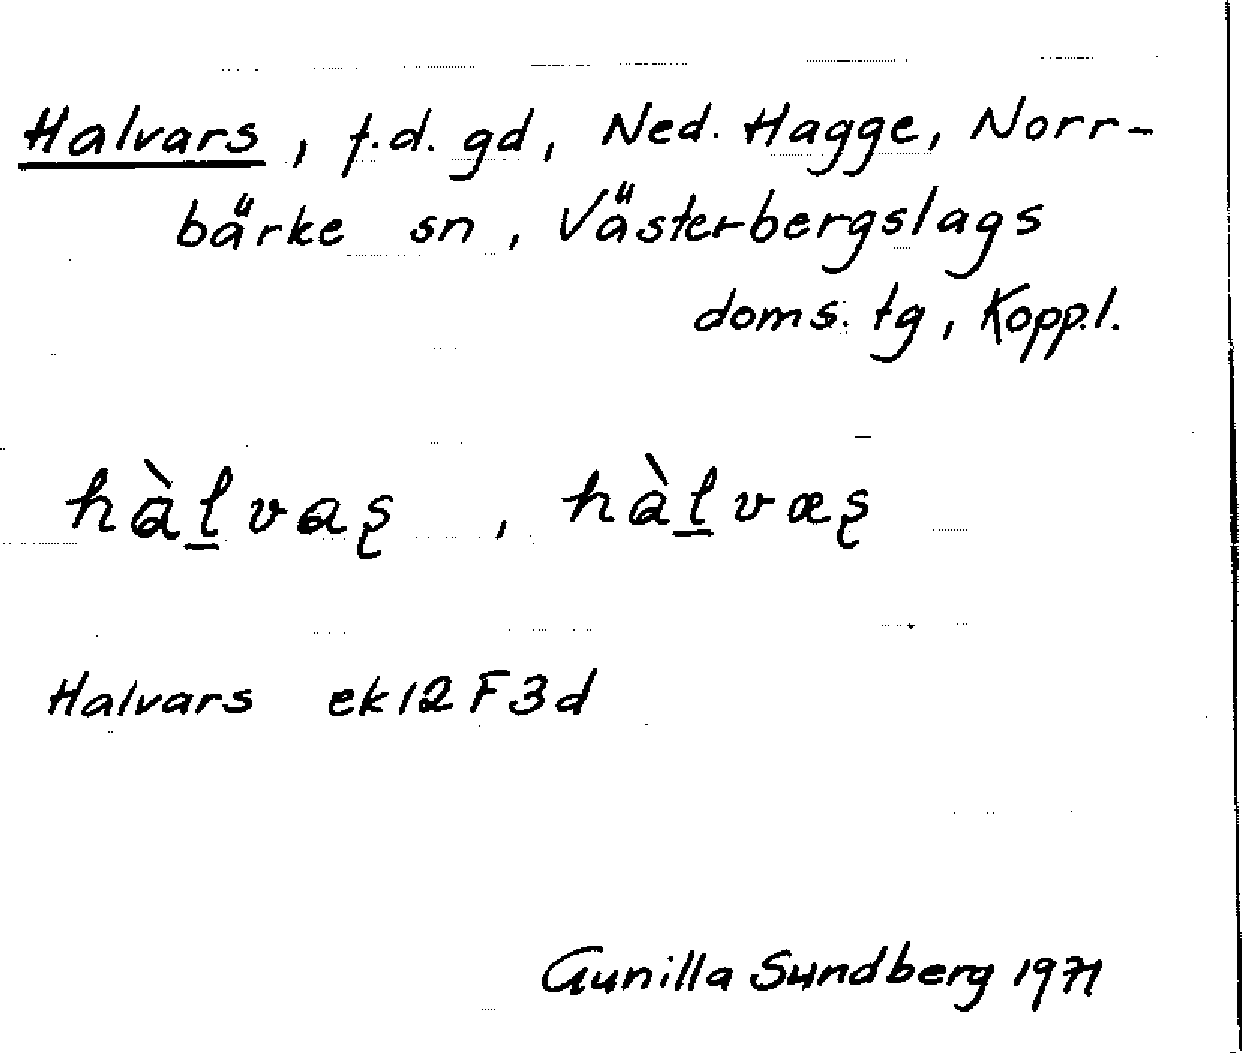 Halvars, f.d. gd, Ned. Hagge, Norr-
bärke sn, Västerbergslags
doms. tg, Kopp.l.
hàl̲vaʂ, hàl̲væʂ
Halvars ek 12 F 3d
Gunilla Sundberg 1971